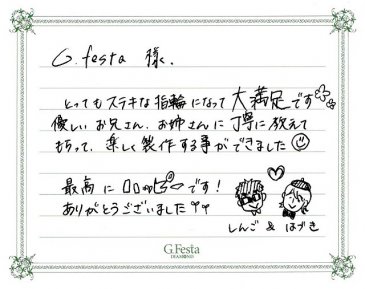 G.festa 様.
とってもステキな指輪になって大満足です
優しいお兄さん、お姉さんに丁寧に教えて
もらって、楽しく製作する事ができました
最高にハッピーです!
ありがとうございました
しんご & はづき
G.Festa
DIAMOND